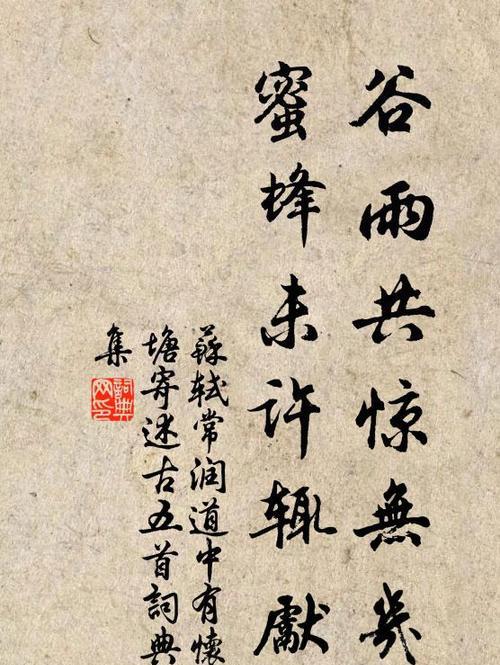 谷雨共惊無幾
蜜蜂未许辄獻
蘇轼常润道中有懷
塘寄述古五首詞典
集
詞典网印